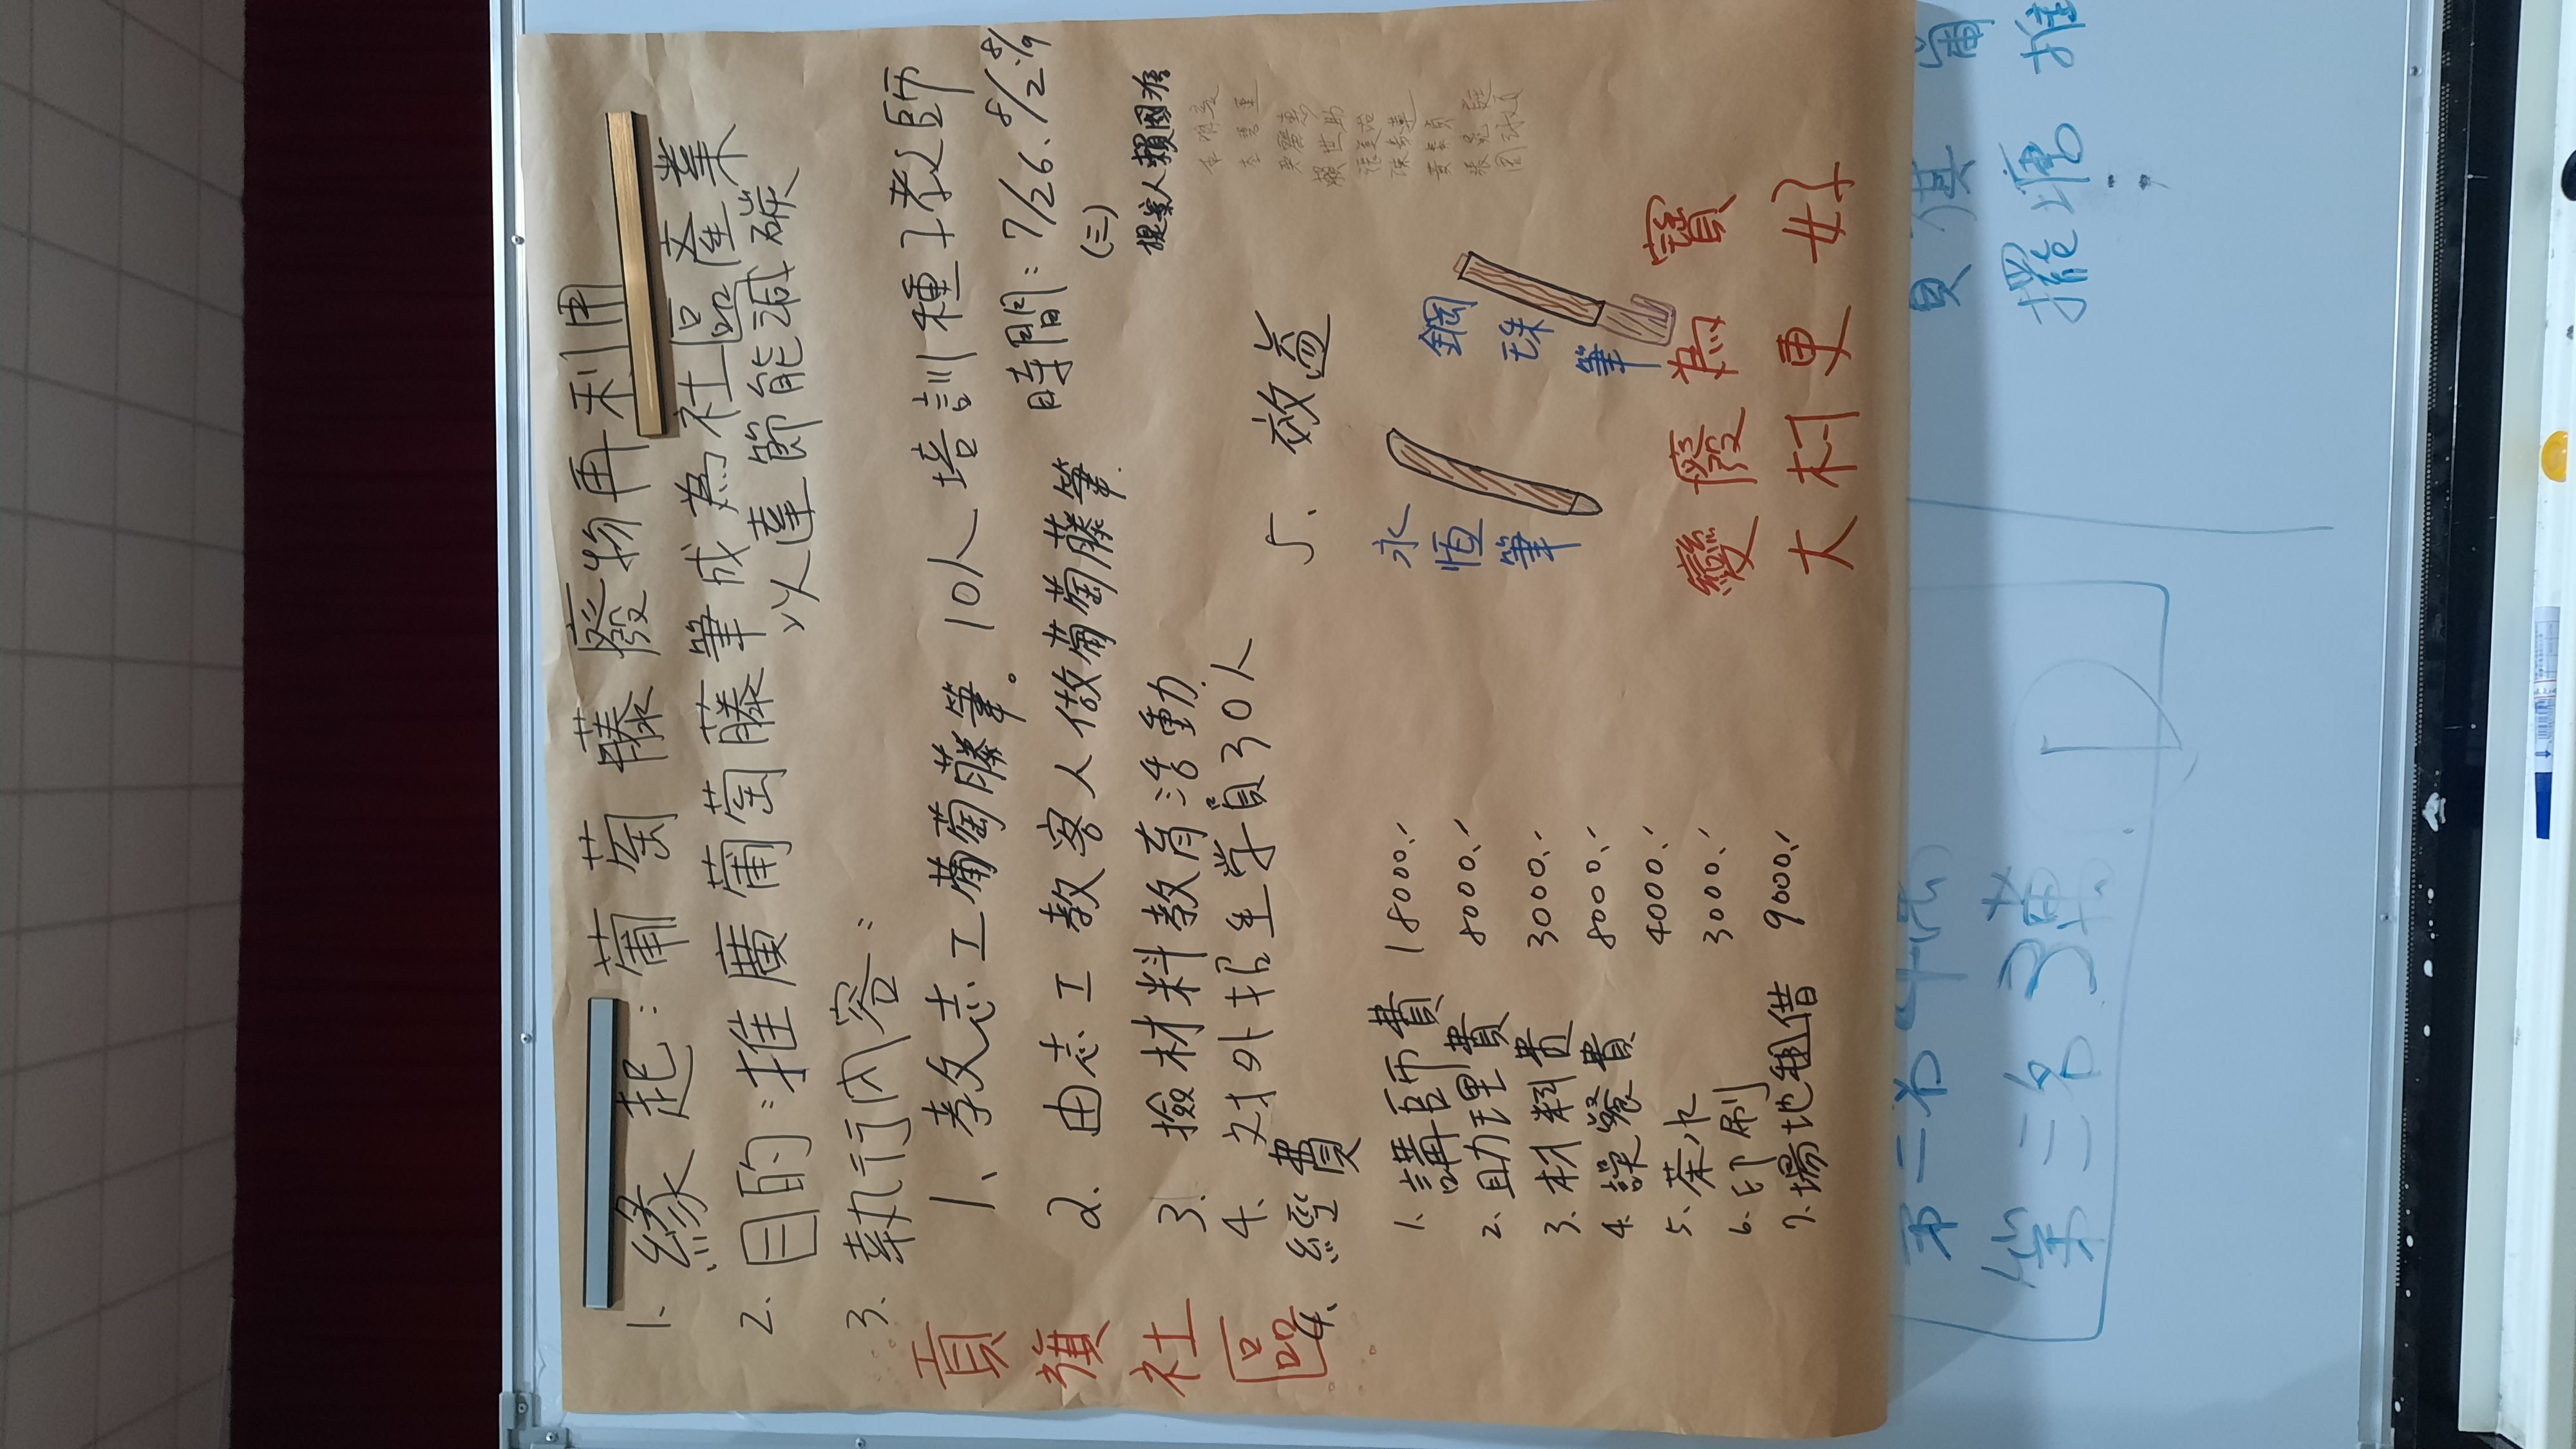 1、緣起：葡萄藤廢物再利用
2、目的：推廣葡萄藤筆成為社區產業
以達節能減碳
3、執行內容：
1、教志工葡萄藤筆。10人 培訓種子老師
2、由志工教客人做葡萄藤筆. 時間：7/26、8/2、8/9
(三)
3、撿材料教育活動.
提案人賴國添
4、对外招生学員30人
貢旗社區
4、經費
1、講師費 18000、
2、助理費 8000、
3、材料費 3000、
4、誤餐費 8000、
5、茶水 4000、
6、印刷 3000、
7、場地租借 9000、
5、效益
永恆筆
鋼珠筆
變廢為寶
大村更好
第二名
第三名 3萬